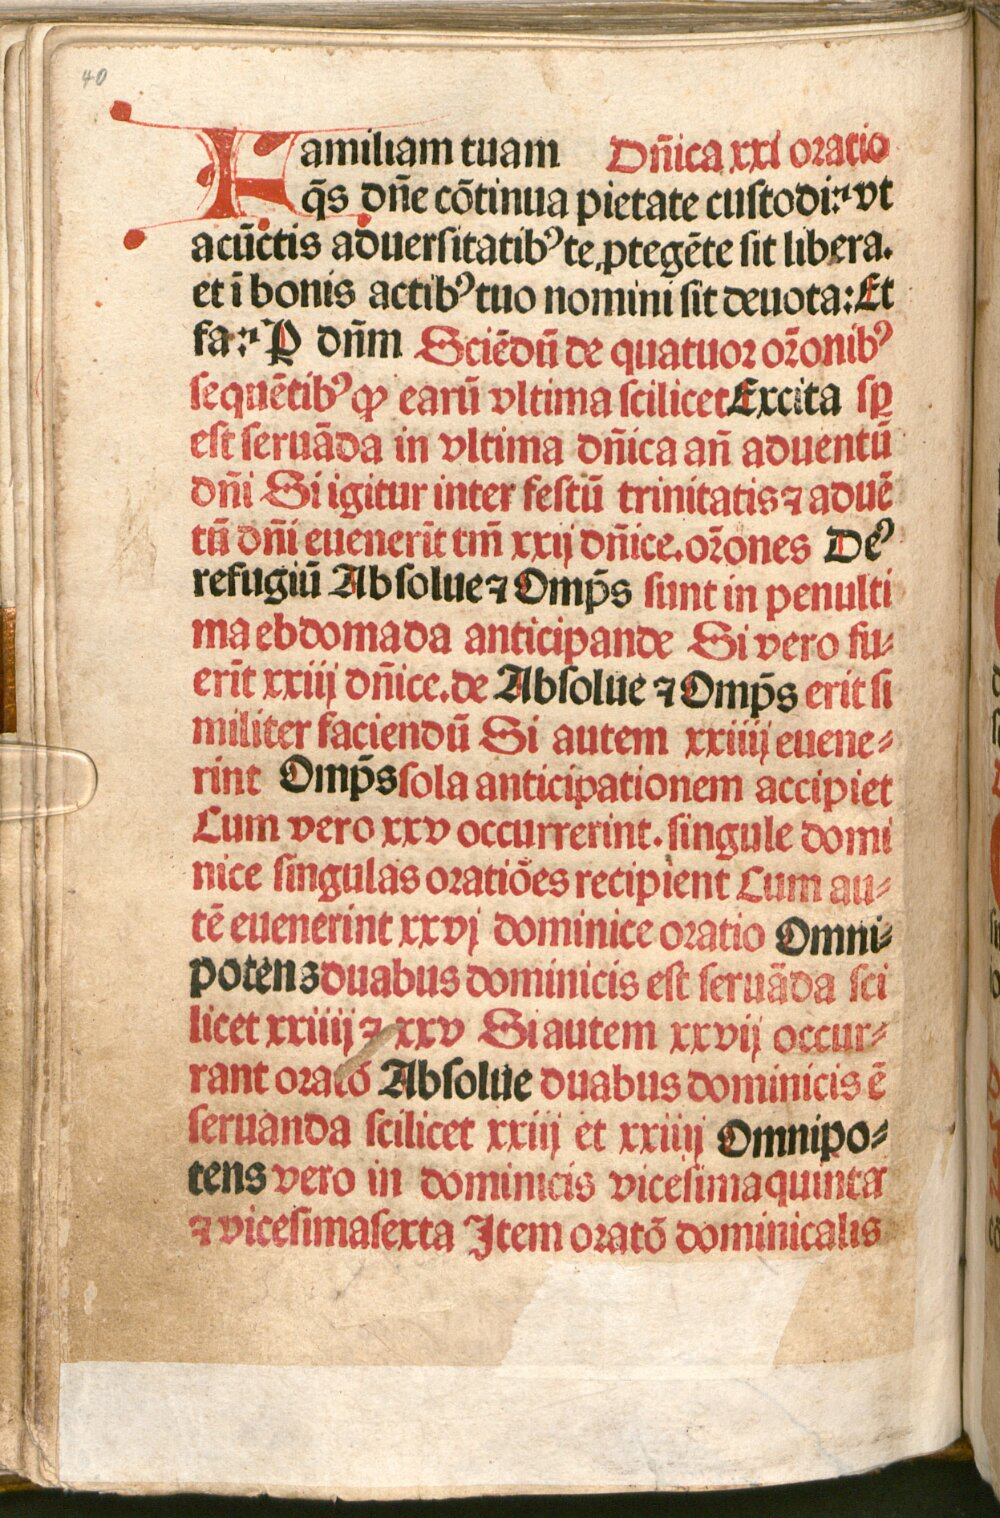 40
Familiam tuam Dn̄ica xxi oratio
q̄s dn̄e cōtinua pietate custodi: vt
acūctis aduersitatibꝰ te ꝓtegēte sit libera.
et ī bonis actibꝰ tuo nomini sit deuota: Et
fa: P̲ dn̄m Sciēdū de quatuor or̄onibꝰ
sequētibꝰ ꝙ earū vltima scilicet Excita sꝑ
est seruāda in vltima dn̄ica an̄ aduentū
dn̄i Si igitur inter festū trinitatis ⁊ aduē
tū dn̄i euenerīt tm̄ xxij dn̄ice. or̄ones Deꝰ
refugiū Absolue ⁊ Omp̄s sunt in penulti
ma ebdomada anticipande Si vero fu⸗
erīt xxiij dn̄ice. de Absolue ⁊ Omp̄s erit si
militer faciendū Si autem xxiiij euene⸗
rint Omp̄s sola anticipationem accipiet
Cum vero xxv occurrerint. singule domi
nice singulas oratiōes recipient Cum au⸗
tē euenerint xxvj dominice oratio Omni⸗
potens duabus dominicis est seruāda sci
licet xxiiij ⁊ xxv Si autem xxvij occur⸗
rant oratō Absolue duabus dominicis ē
seruanda scilicet xxiij et xxiiij Omnipo⸗
tens vero in dominicis vicesimaquinta
⁊ vicesimasexta Item oratō dominicalis